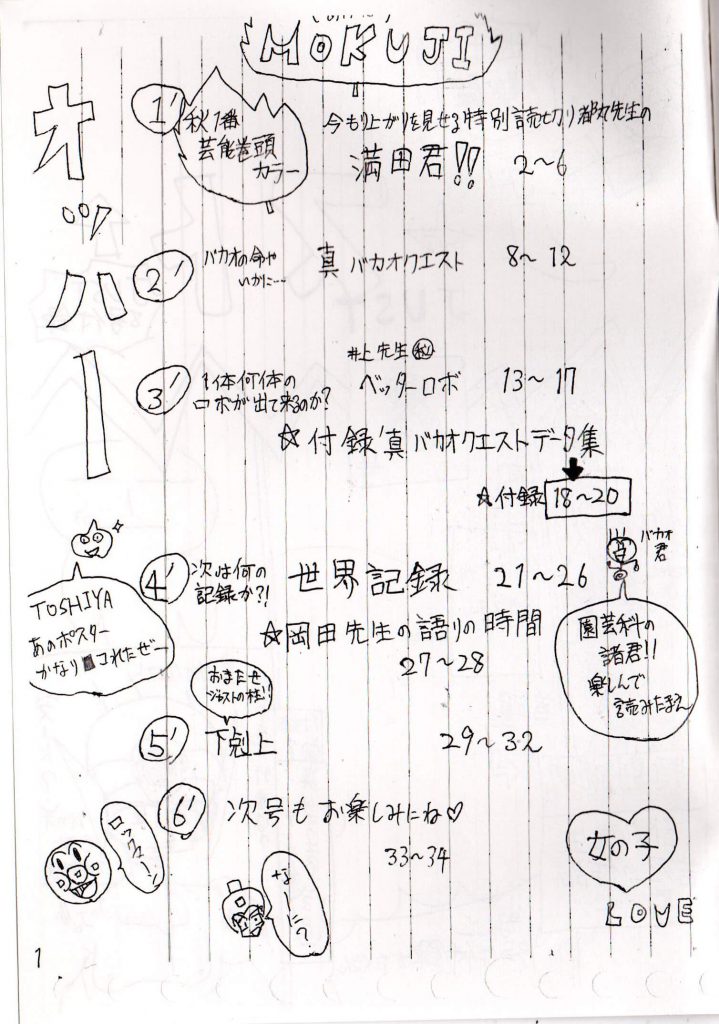 MOKUJI
オッハー
1'
秋1番
芸能巻頭
カラー
今もり上がりを見せる特別読切り都丸先生の
満田君!!
2〜6
2'
バカオの命や
いかに…
真 バカオクエスト
8〜12
3'
1体何体の
ロボが出て来るのか?
井上先生
ベッターロボ
13〜17
☆付録'真バカオクエストデータ集
☆付録 18〜20
4'
次は何の
記録か?!
世界記録
21〜26
バカオ
君
TOSHIYA
あのポスター
かなり コれたぜー
☆岡田先生の語りの時間
27〜28
園芸科の
諸君!!
楽しんで
読みたまえ
おまたせ
ジャストの柱!!
5'
下剋上
29〜32
6'
次号もお楽しみにね♡
33〜34
ロックマーン
なーに?
女の子
LOVE
1